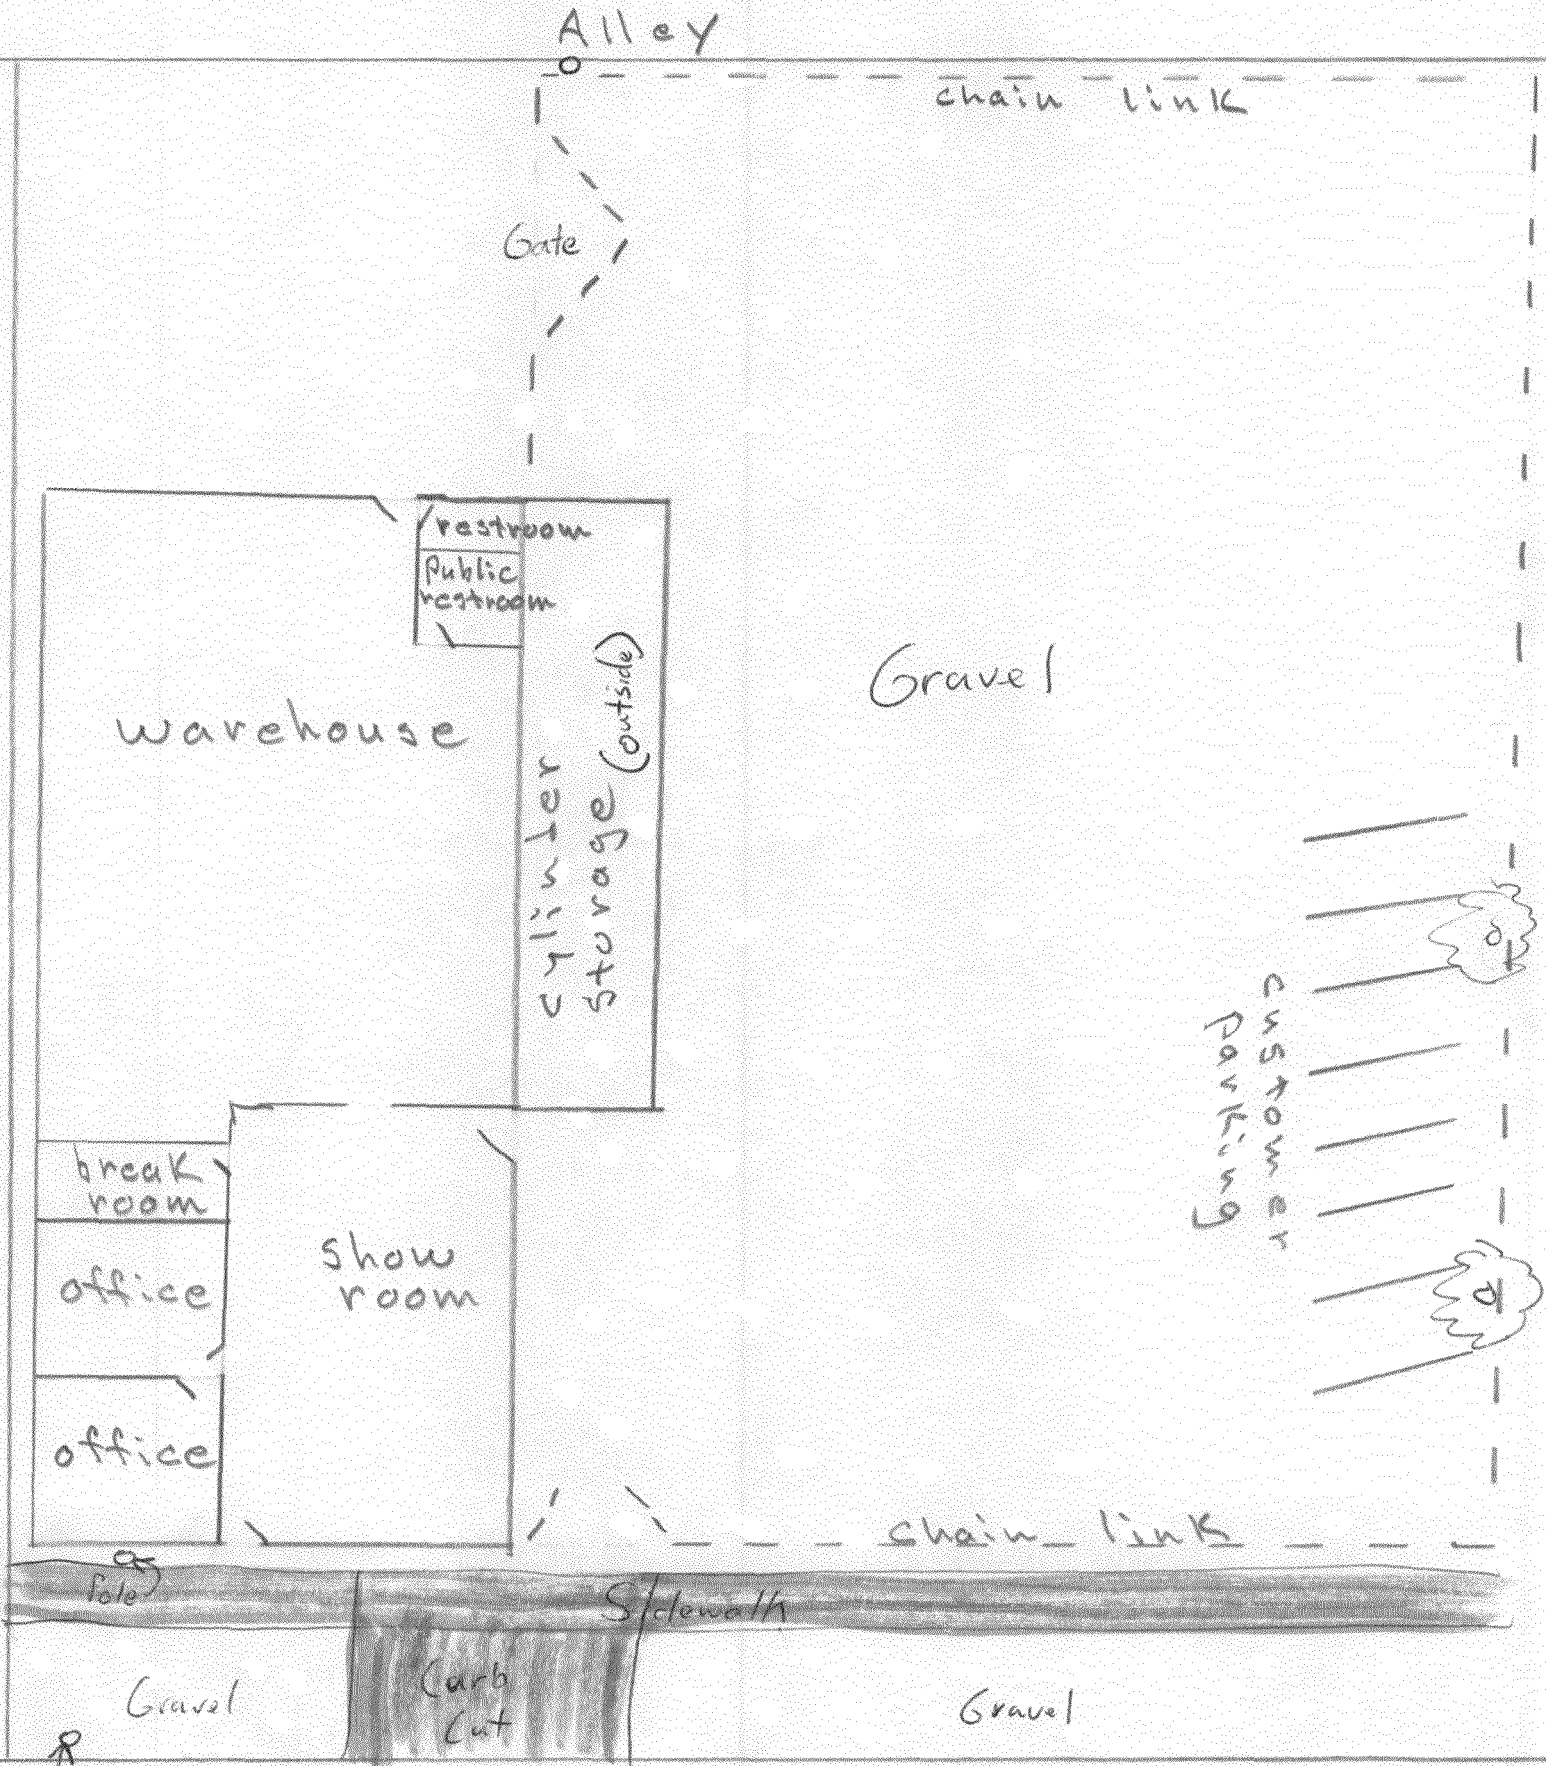 Alley
chain link
Gate
restroom
public
restroom
warehouse
cylinder
storage (outside)
Gravel
customer
parking
break
room
office
show
room
office
chain link
Pole
Sidewalk
Gravel
Curb
Cut
Gravel